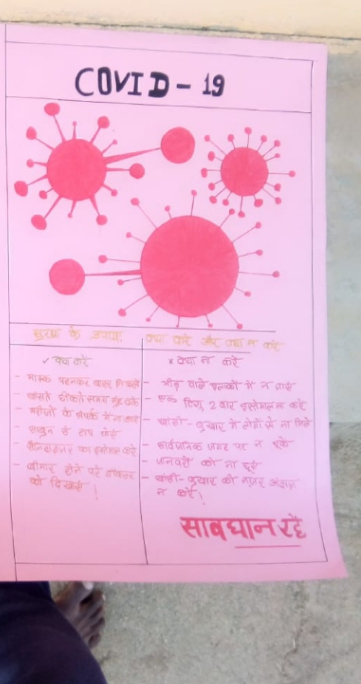 COVID-19
सुरक्षा के उपाय क्या करें और क्या न करें
✓ क्या करें
- मास्क पहनकर बाहर निकलें
- खांसते छींकते समय मुंह ढकें
- मरीजों के संपर्क में न आएं
- साबुन से हाथ धोएं
- का इस्तेमाल करें
- बीमार होने पर डॉक्टर
को दिखाएं!
× क्या न करें
- भीड़ वाले इलाकों में न जाएं
- एक टिशू 2 बार इस्तेमाल न करें
- खांसी-बुखार में लोगों से ना मिलें
- सार्वजनिक जगह पर न थूकें
- जानवरों को ना छुएं
- खांसी-बुखार को नजर अंदाज
न करें!
सावधान रहें